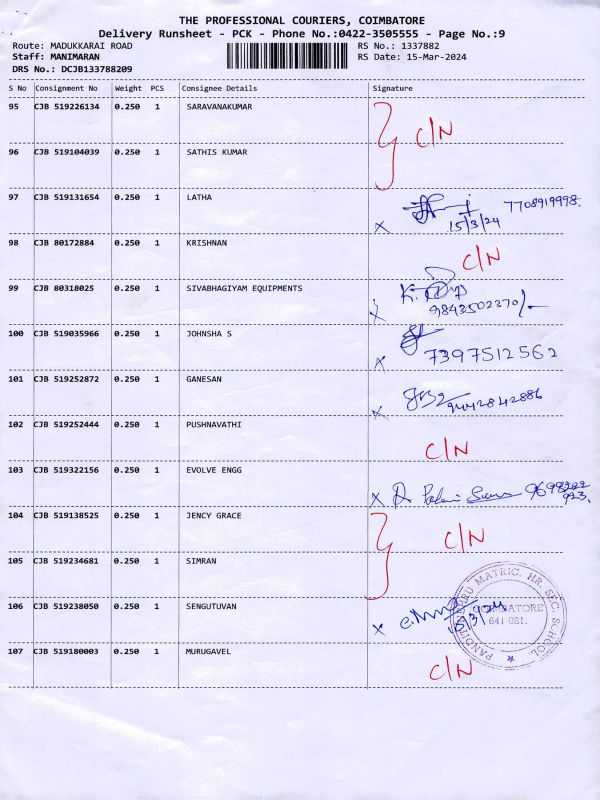 THE PROFESSIONAL COURIERS, COIMBATORE
Delivery Runsheet - PCK - Phone No.:0422-3505555 - Page No.:9
Route: MADUKKARAI ROAD RS No.: 1337882
Staff: MANIMARAN RS Date: 15-Mar-2024
DRS No.: DCJB133788209
S No Consignment No Weight PCS Consignee Details Signature
95 CJB 519226134 0.250 1 SARAVANAKUMAR
C/N
96 CJB 519104039 0.250 1 SATHIS KUMAR
97 CJB 519131654 0.250 1 LATHA 7708919998.
x 15/3/24
98 CJB 80172884 0.250 1 KRISHNAN
C/N
99 CJB 80318025 0.250 1 SIVABHAGIYAM EQUIPMENTS
x 9843502270/-
100 CJB 519035966 0.250 1 JOHNSHA S
x 7397512562
101 CJB 519252872 0.250 1 GANESAN
x 9442842886
102 CJB 519252444 0.250 1 PUSHNAVATHI
C/N
103 CJB 519322156 0.250 1 EVOLVE ENGG
x
104 CJB 519138525 0.250 1 JENCY GRACE
C/N
105 CJB 519234681 0.250 1 SIMRAN
106 CJB 519238050 0.250 1 SENGUTUVAN
x 15/3/24
MATRIC. HR. SEC. SCHOOL,
COIMBATORE
641 021.
107 CJB 519180003 0.250 1 MURUGAVEL
C/N